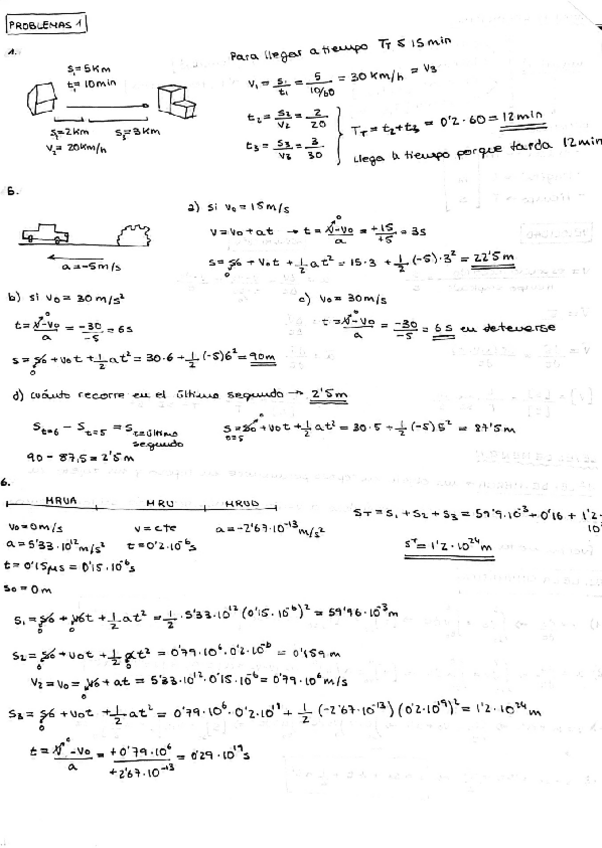 PROBLEMAS 1
1.
S₁=5Km
t₁=10min
S₂=2Km S₃=3Km
V₂=20Km/h
Para llegar a tiempo T_T ≤ 15 min
V₁ = S₁/t₁ = 5/(10/60) = 30 Km/h = V₃
t₂ = S₂/V₂ = 2/20
t₃ = S₃/V₃ = 3/30
T_T = t₂+t₃ = 0'2·60 = 12min
llega a tiempo porque tarda 12min
5.
a=-5m/s
a) si V₀=15m/s
V=V₀+at → t = (V-V₀)/a = +15/+5 = 3s
S = S₀ + V₀t + 1/2 at² = 15·3 + 1/2 (-5)·3² = 22'5m
b) si V₀ = 30 m/s²
t = (V-V₀)/a = -30/-5 = 6s
S = S₀ + V₀t + 1/2 at² = 30·6 + 1/2 (-5)6² = 90m
c) V₀ = 30m/s
t = (V-V₀)/a = -30/-5 = 6s en detenerse
d) cuánto recorre en el último segundo → 2'5m
S t=6 - S t=5 = S t=último segundo
S t=5 = S₀ + V₀t + 1/2 at² = 30·5 + 1/2 (-5) 5² = 87'5m
90 - 87,5 = 2'5m
6.
MRUA MRU MRUD
V₀=0m/s V=cte a=-2'67·10⁻¹³m/s²
a=5'33·10¹²m/s² t=0'2·10⁻⁶s
t=0'15μs=0'15·10⁻⁶s
S₀=0m
S_T = S₁+S₂+S₃ = 59'9·10⁻³+0'16+1'2·10
S_T = 1'2·10²⁴m
S₁ = S₀ + V₀t + 1/2 at² = 1/2·5'33·10¹² (0'15·10⁻⁶)² = 59'96·10⁻³m
S₂ = S₀ + V₀t + 1/2 at² = 0'79·10⁶·0'2·10⁻⁶ = 0'159m
V₂=V₀=V₀+at = 5'33·10¹²·0'15·10⁻⁶ = 0'79·10⁶m/s
S₃ = S₀ + V₀t + 1/2 at² = 0'79·10⁶·0'2·10¹⁹ + 1/2 (-2'67·10⁻¹³)(0'2·10¹⁹)² = 1'2·10²⁴m
t = (V-V₀)/a = +0'79·10⁶/+2'67·10⁻¹³ = 0'29·10¹⁹s